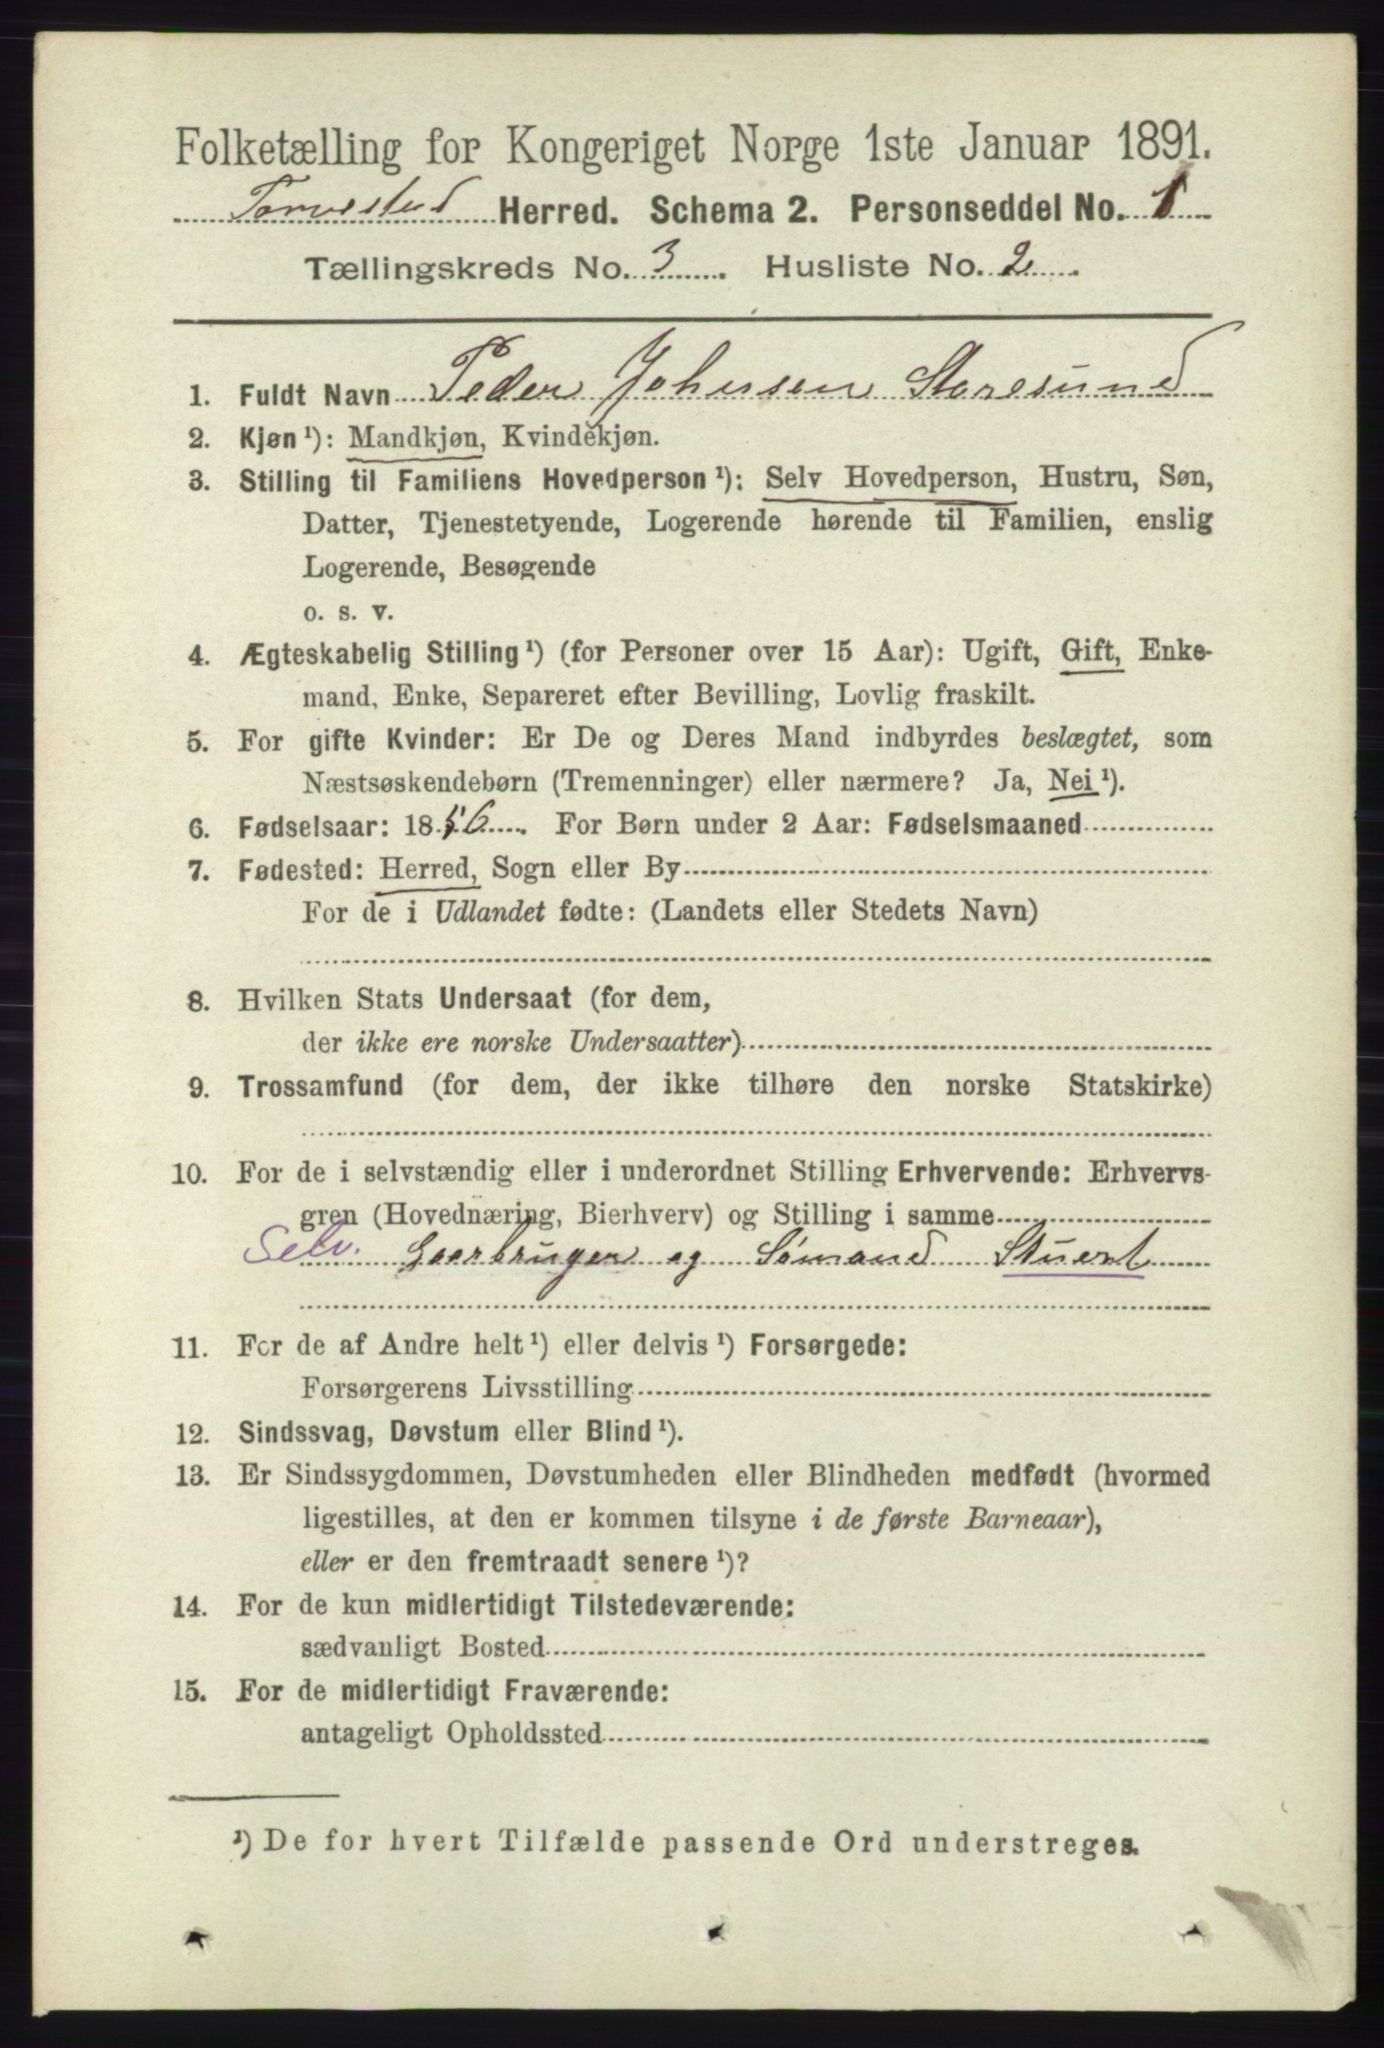 Folketælling for Kongeriget Norge 1ste Januar 1891.
Torvestad Herred. Schema 2. Personseddel No. 1
Tællingskreds No. 3. Husliste No. 2.
1. Fuldt Navn Peder Johnsen Storesund
2. Kjøn ¹): Mandkjøn, Kvindekjøn.
3. Stilling til Familiens Hovedperson ¹): Selv Hovedperson, Hustru, Søn,
Datter, Tjenestetyende, Logerende hørende til Familien, enslig
Logerende, Besøgende
o. s. v.
4. Ægteskabelig Stilling ¹) (for Personer over 15 Aar): Ugift, Gift, Enke-
mand, Enke, Separeret efter Bevilling, Lovlig fraskilt.
5. For gifte Kvinder: Er De og Deres Mand indbyrdes beslægtet, som
Næstsøskendebørn (Tremenninger) eller nærmere? Ja, Nei ¹).
6. Fødselsaar: 1856. For Børn under 2 Aar: Fødselsmaaned
7. Fødested: Herred, Sogn eller By
For de i Udlandet fødte: (Landets eller Stedets Navn)
8. Hvilken Stats Undersaat (for dem,
der ikke ere norske Undersaatter)
9. Trossamfund (for dem, der ikke tilhøre den norske Statskirke)
10. For de i selvstændig eller i underordnet Stilling Erhvervende: Erhvervs-
gren (Hovednæring, Bierhverv) og Stilling i samme
Selv. Gaarbruger og Sömand Stuert
11. For de af Andre helt ¹) eller delvis ¹) Forsørgede:
Forsørgerens Livsstilling
12. Sindssvag, Døvstum eller Blind ¹).
13. Er Sindssygdommen, Døvstumheden eller Blindheden medfødt (hvormed
ligestilles, at den er kommen tilsyne i de første Barneaar),
eller er den fremtraadt senere ¹)?
14. For de kun midlertidigt Tilstedeværende:
sædvanligt Bosted
15. For de midlertidigt Fraværende:
antageligt Opholdssted
¹) De for hvert Tilfælde passende Ord understreges.